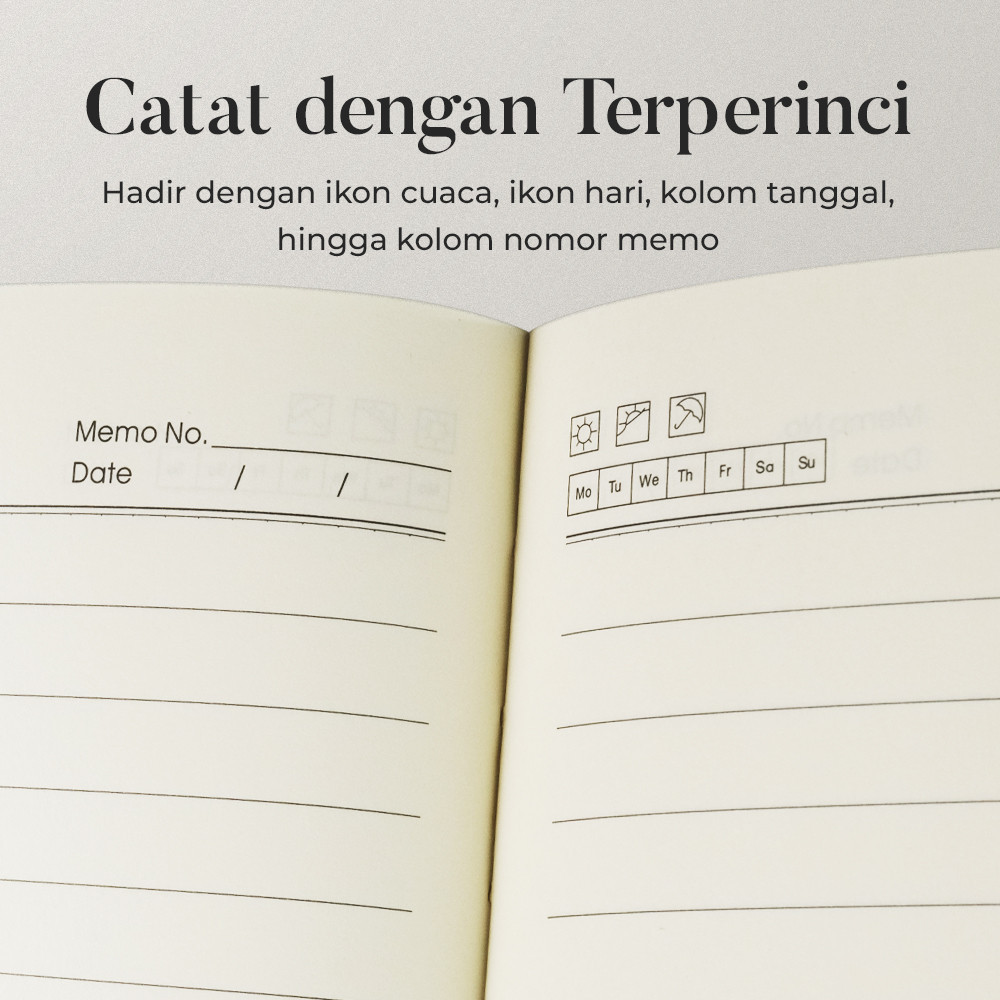 Catat dengan Terperinci
Hadir dengan ikon cuaca, ikon hari, kolom tanggal,
hingga kolom nomor memo
Memo No.
Date / /
Mo Tu We Th Fr Sa Su
Memo No.
Date